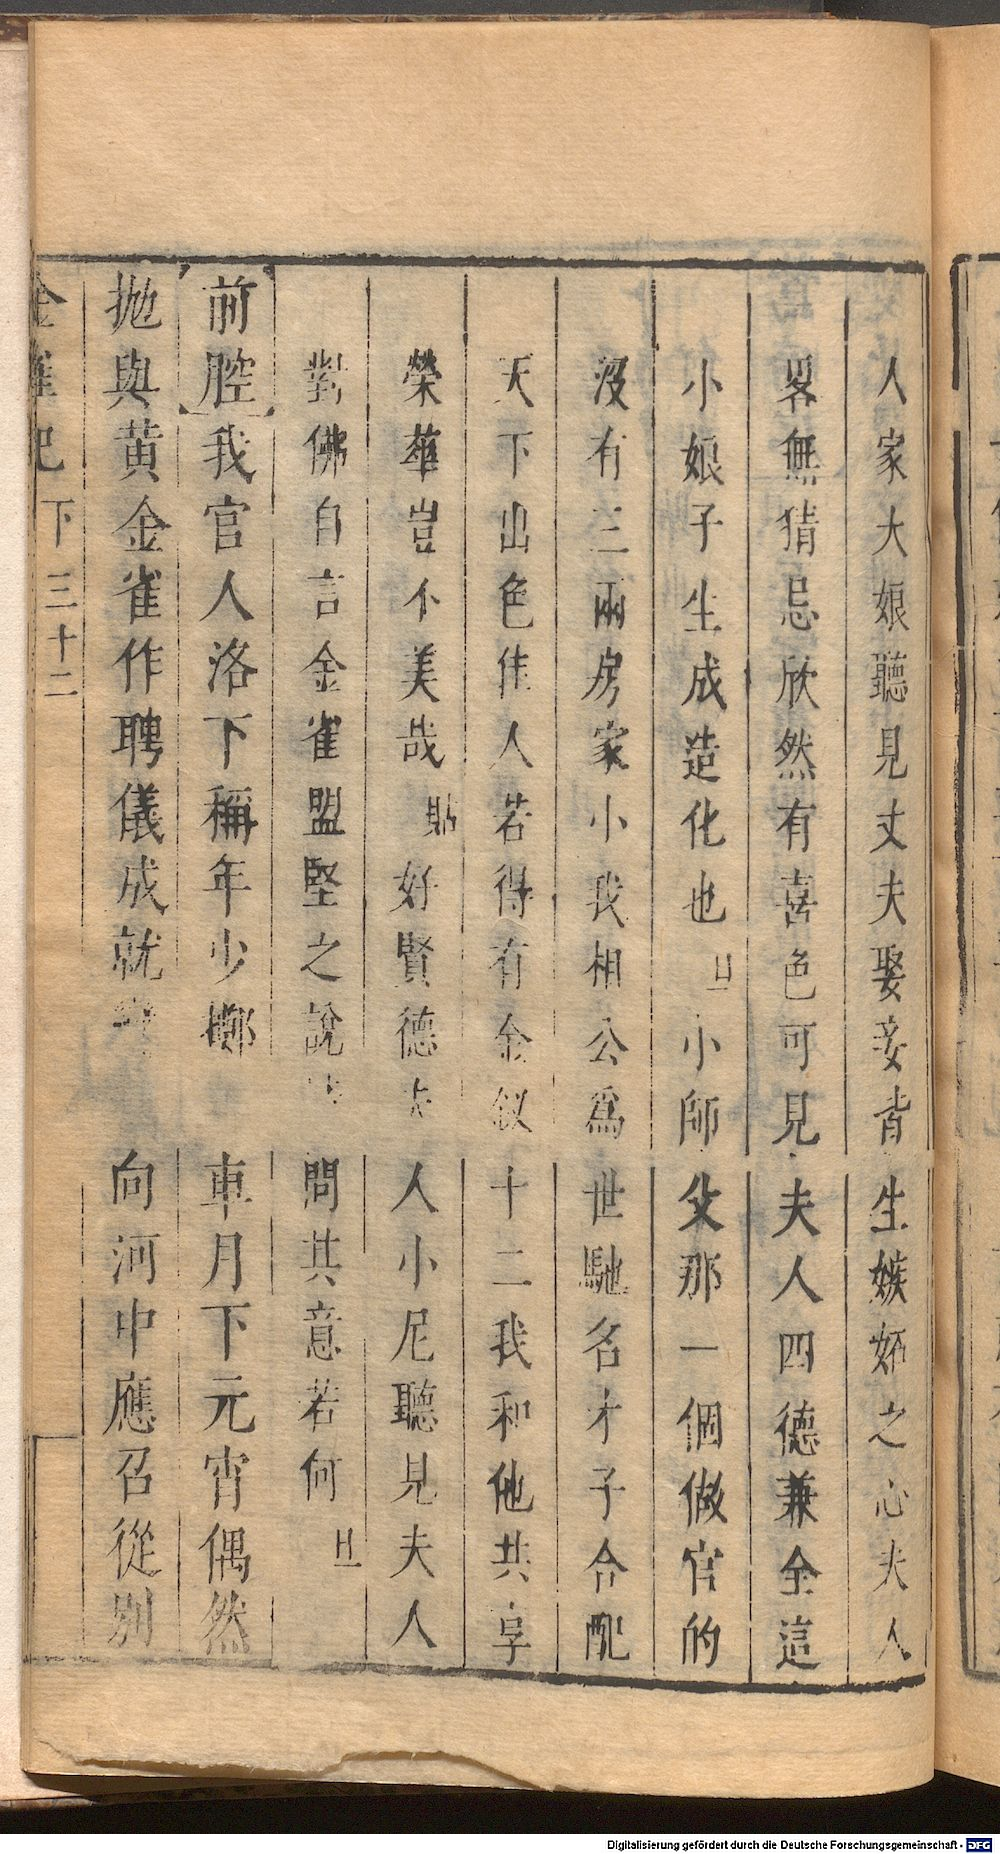 人家大娘聽見丈夫娶妾背生嫉妬之心夫人
畧無猜忌欣然有喜色可見夫人四德兼全這
小娘子生成造化也 旦 小師父那一個做官的
沒有三兩房家小我相公爲世馳名才子合配
天下出色佳人若得有金釵十二我和他共享
榮華豈不美哉 貼 好賢德夫人小尼聽見夫人
對佛自言金雀盟堅之說 問其意若何 旦
前腔 我官人洛下稱年少擲 車月下元宵偶然
拋與黃金雀作聘儀成就 向河中應召從別
金雀記 下 三十二
Digitalisierung gefördert durch die Deutsche Forschungsgemeinschaft - DFG